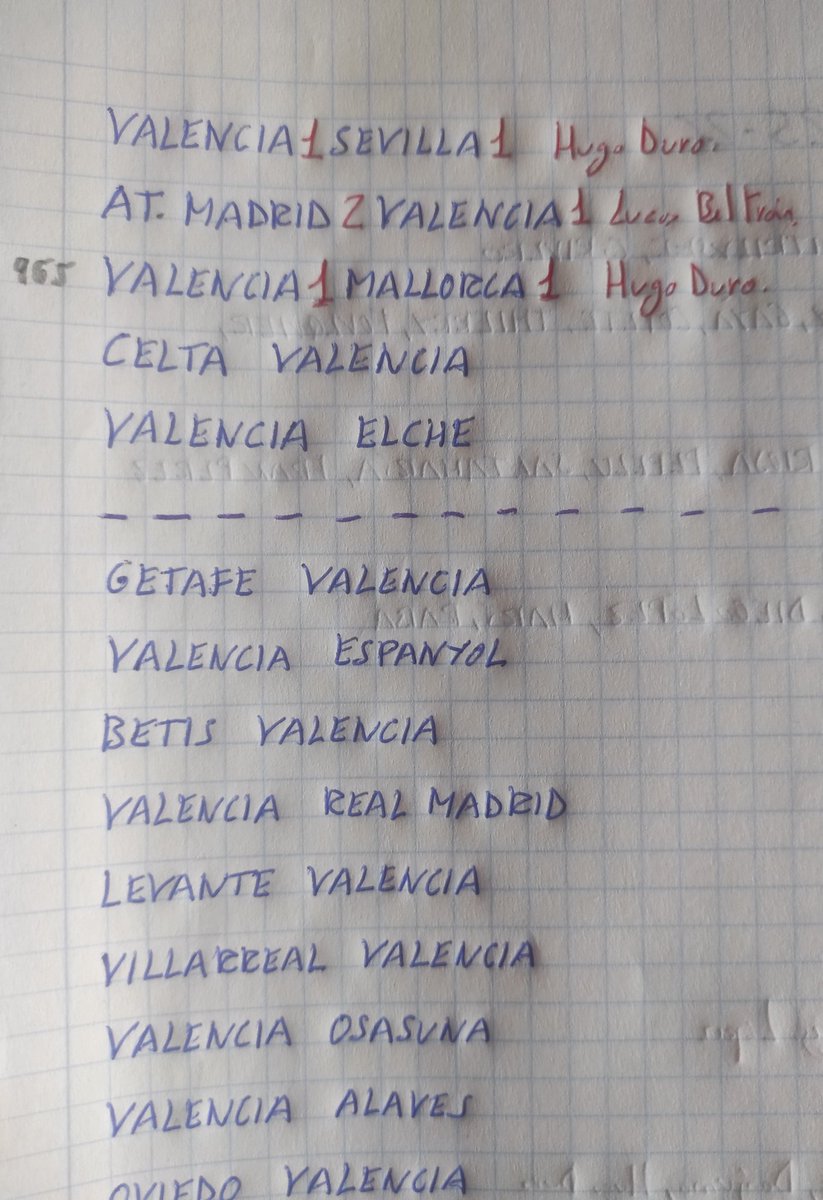 VALENCIA 1 SEVILLA 1 Hugo Duro.
AT. MADRID 2 VALENCIA 1 Lucas Beltrán.
965 VALENCIA 1 MALLORCA 1 Hugo Duro.
CELTA VALENCIA
VALENCIA ELCHE
- - - - - - - - - - - -
GETAFE VALENCIA
VALENCIA ESPANYOL
BETIS VALENCIA
VALENCIA REAL MADRID
LEVANTE VALENCIA
VILLARREAL VALENCIA
VALENCIA OSASUNA
VALENCIA ALAVES
OVIEDO VALENCIA